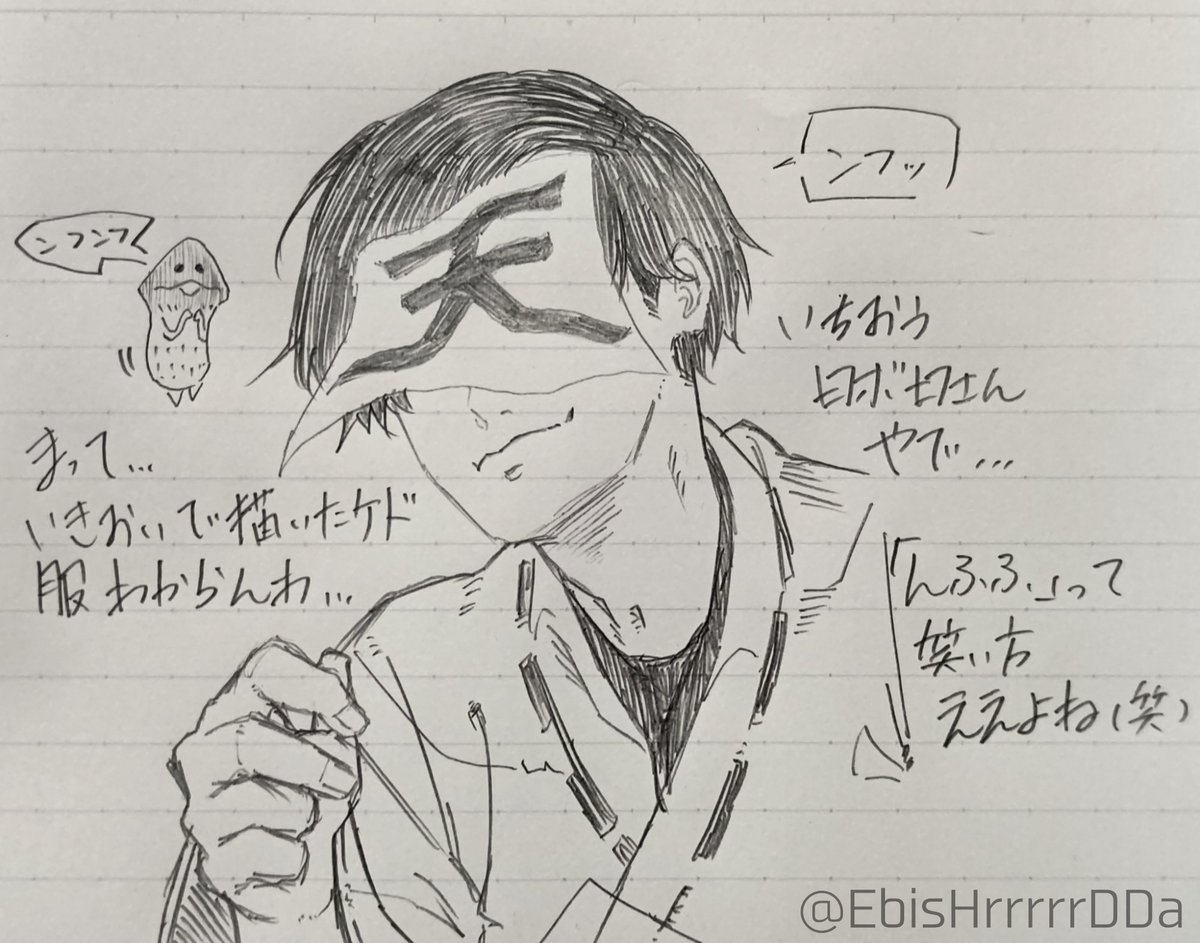 ンフッ
ンフンフ
天
いちおう
やで…
まって…
いきおいで描いたケド
服わからんわ…
「んふふ」って
笑い方
ええよね(笑)
@EbisHrrrrrDDa